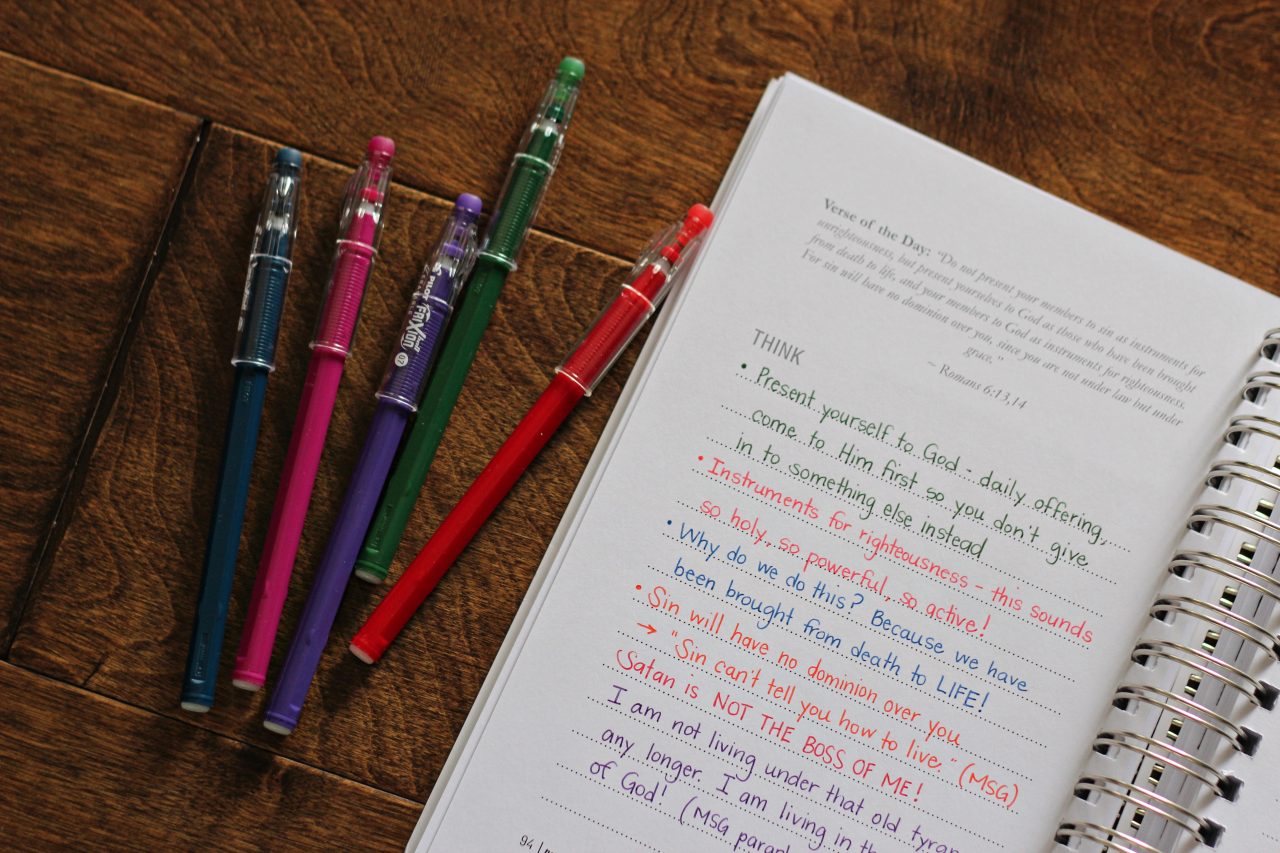 PILOT
FRIXION
07
Verse of the Day: "Do not present your members to sin as instruments for
unrighteousness, but present yourselves to God as those who have been brought
from death to life, and your members to God as instruments for righteousness.
For sin will have no dominion over you, since you are not under law but under
grace."
~ Romans 6:13,14
THINK
• Present yourself to God - daily offering,
come to Him first so you don't give
in to something else instead
• Instruments for righteousness - this sounds
so holy, so powerful, so active!
• Why do we do this? Because we have
been brought from death to LIFE!
• Sin will have no dominion over you
→ "Sin can't tell you how to live." (MSG)
(Satan is NOT THE BOSS OF ME!
I am not living under that old
any longer. I am living in
of God! (MSG
94